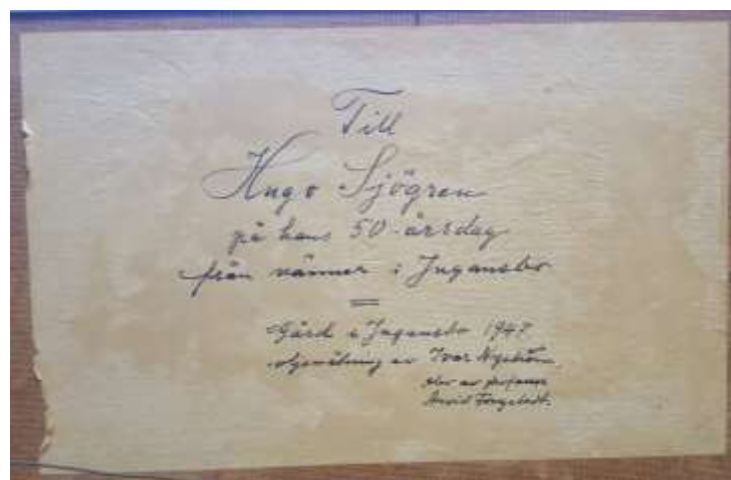 Till
Hugo Sjögren
på hans 50-årsdag
från vänner i Jugansbo
Gård i Jugansbo 1947
oljemålning av Ivar Nyström
elev av professor
Arvid